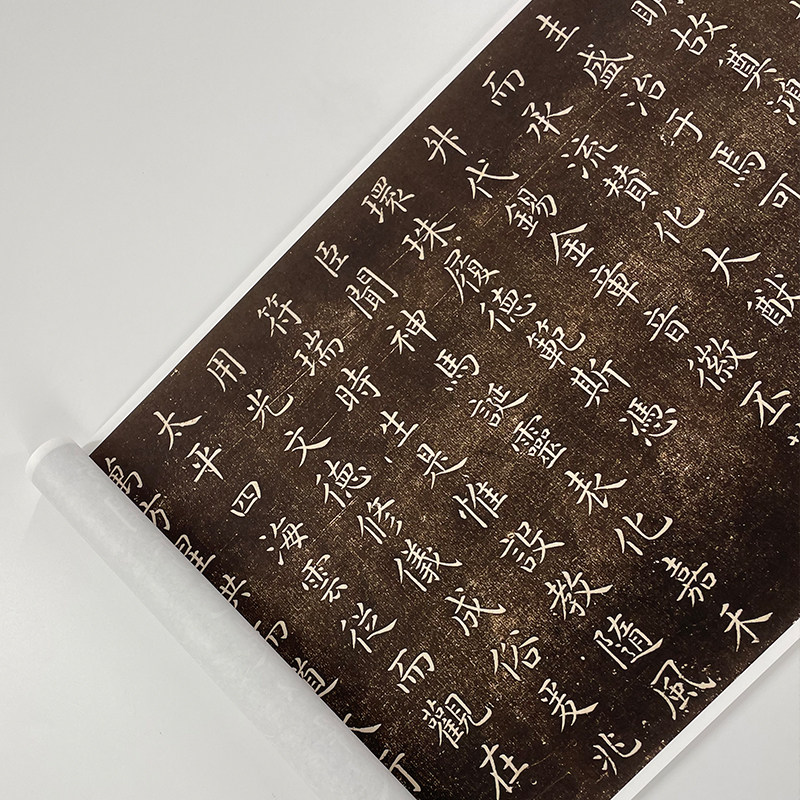 故奠鴻
圭盛治于馬可
而承流贊化大猷
外代錫金章音徽丕
環珠履德範斯憑
臣聞神馬誕靈表化嘉禾
符瑞時生是惟設教隨風
用光文德修儀成俗爰兆
太平四海雲從而觀在
萬方